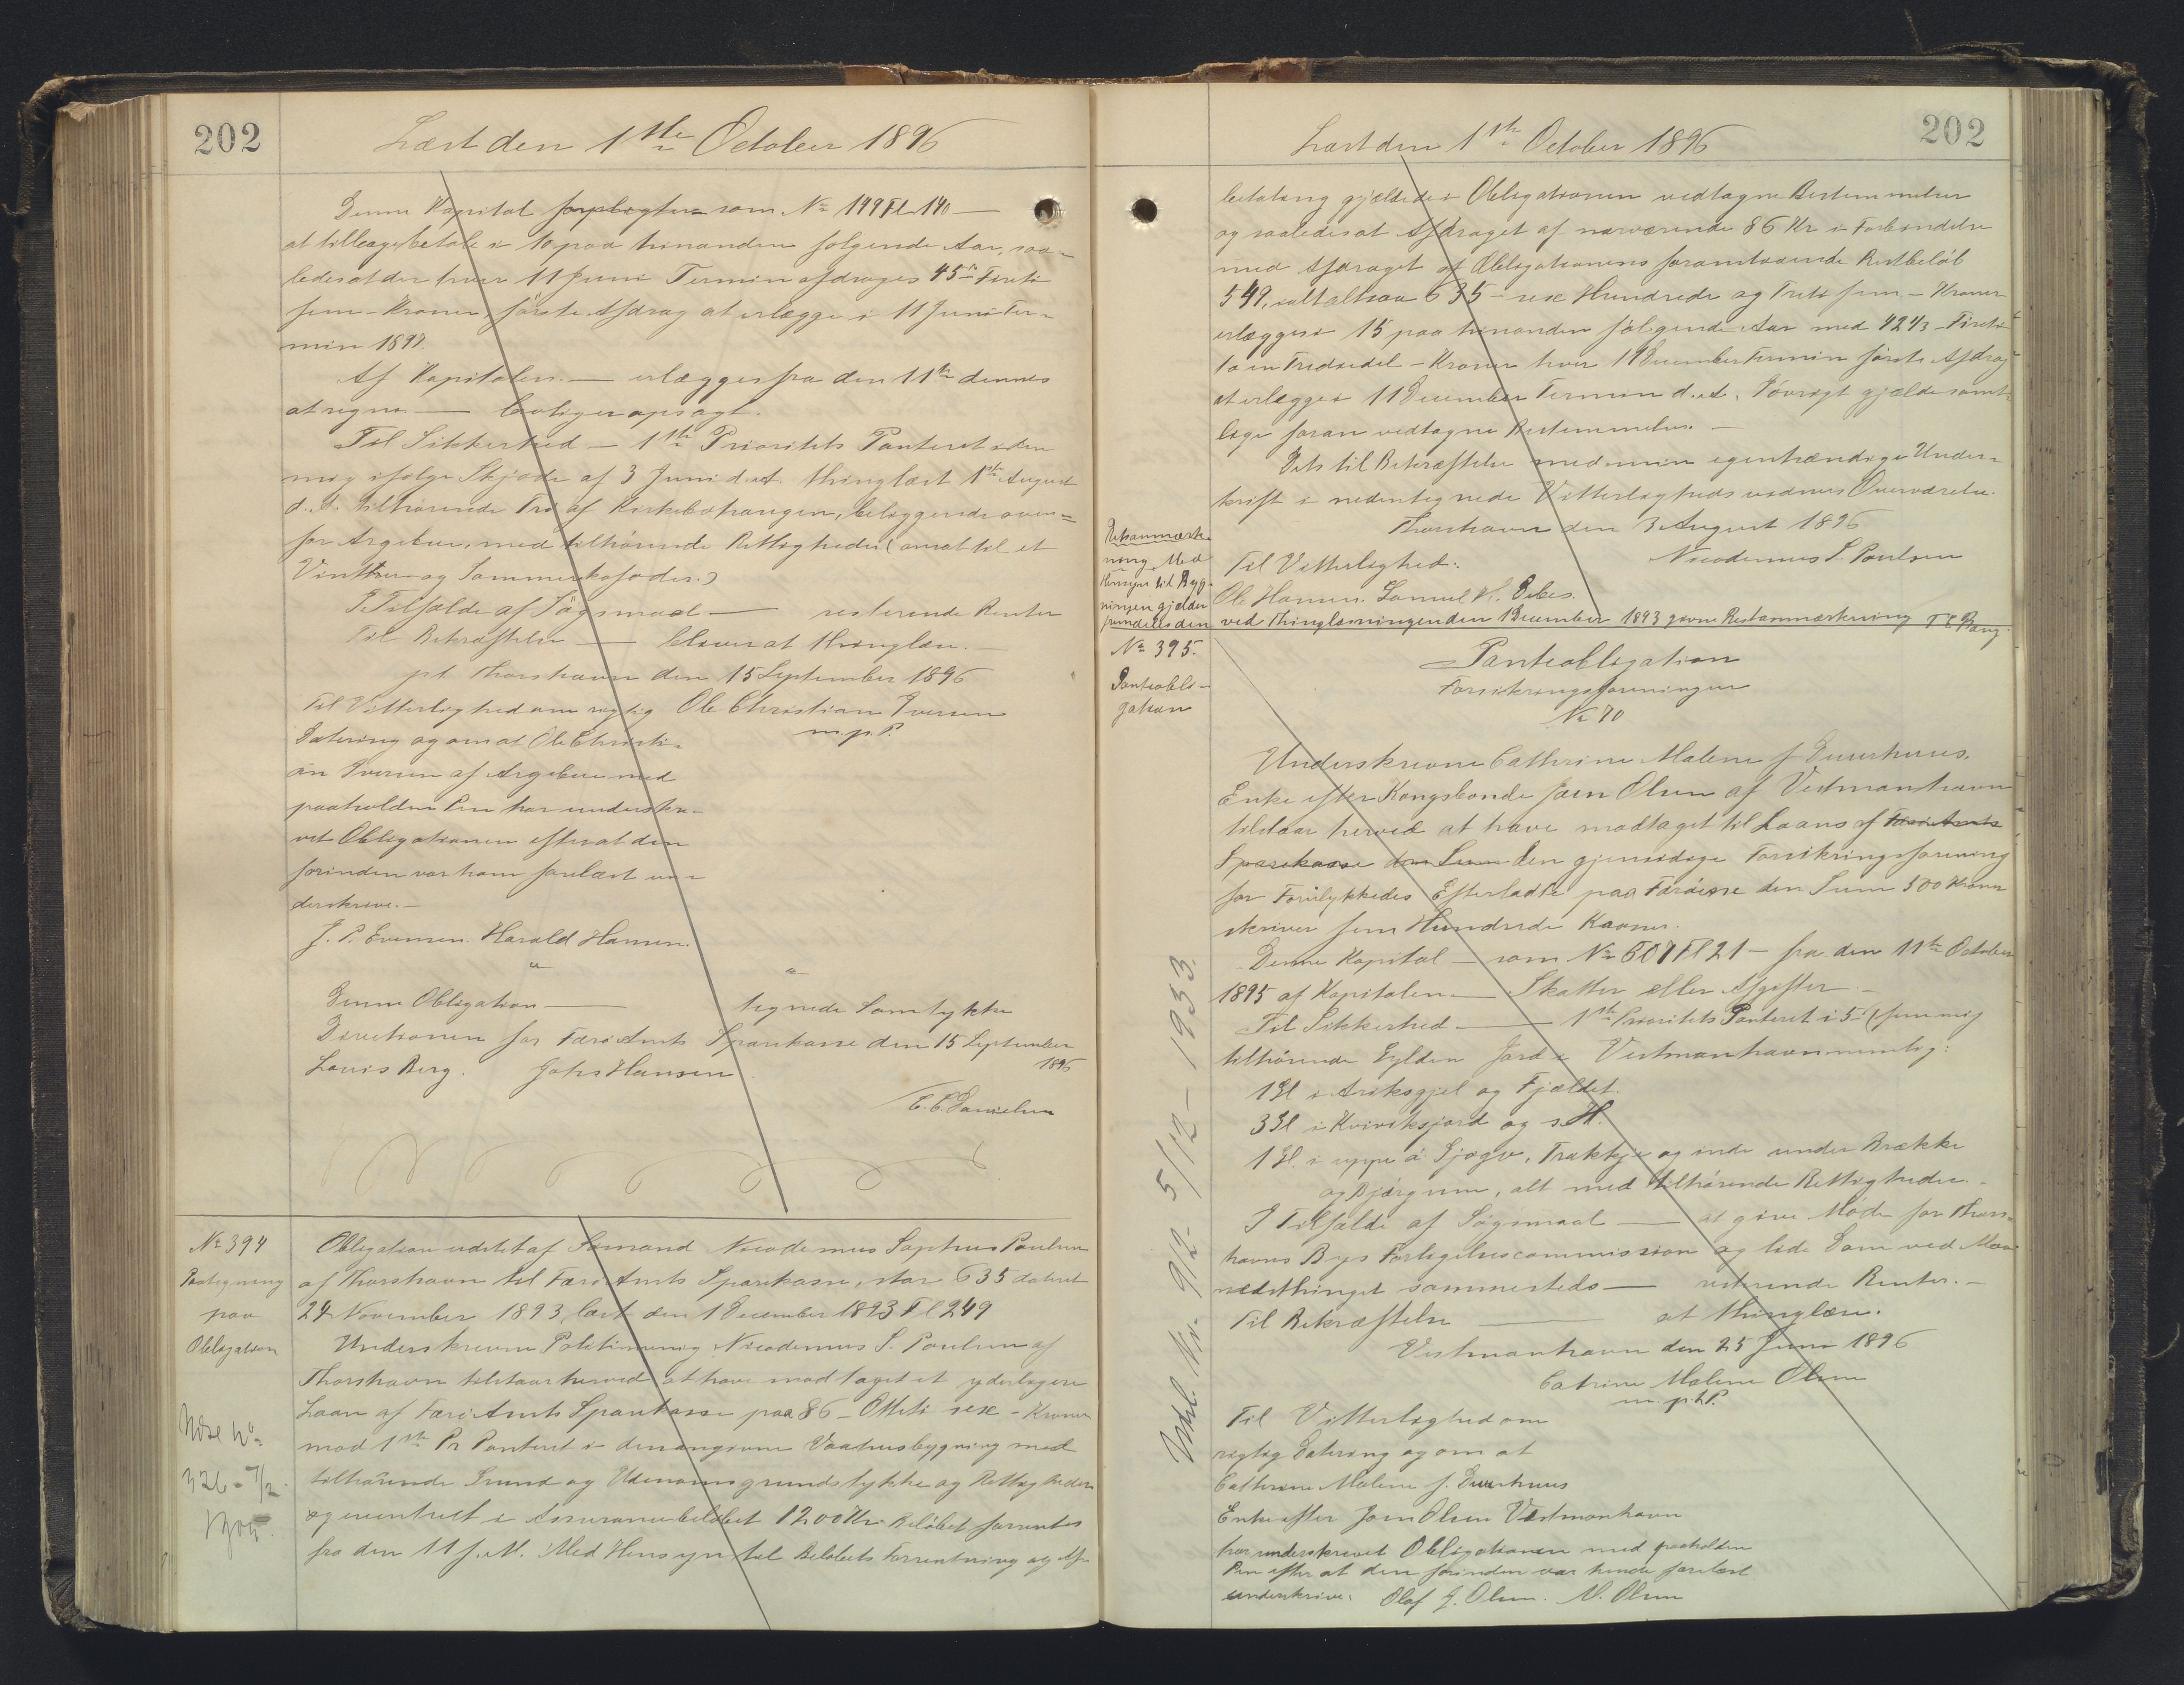 202
Læst den 1ste October 1896
Denne Kapital forpligter som No 199 Fl 140 —
at tilbagebetale i 10 paa hinanden følgende Aar, saa-
ledes at der hver 11 Juni Termin afdrages 45 - Fireti
fem - Kroner, første Afdrag at erlægge i 11 Juni Ter-
min 1897.
Af Kapitalen — erlægges fra den 11te dennes
at regne — lovligen opsagt.
Til Sikkerhed — 1ste Prioritets Panteret i den
mig ifølge Skjøde af 3 Juni d.A. thinglæst 1ste August
d.A. tilhørende Trø af Kirkebøhaugen, beliggende oven-
for Argebue, med tilhørende Rettigheder (ansat til et
Vinter og Sommerkofoder.)
I Tilfælde af Søgsmaal — resterende Renter
Til Bekræftelse — bliver at thinglæse.
pt Thorshavn den 15 September 1896
Til Vitterlighed om rigtig Ole Christian Iversen
m.p.P.
Datering og om at Ole Christi-
an Iversen af Argebue med
paaholden Pen har underskre-
vet Obligationen efter at den
forinden var ham forelæst un-
derskrive.—
J. P. Evensen. Harald Hansen.
Denne Obligation — tegnede Samtykke
Directionen for Færø Amts Sparekasse den 15 September
1896
Louis Berg. Johs Hansen
C. C. Danielsen
No 394
Paategning
paa
Obligation
Obligation udstedt af Sømand Nicodemus Sophus Poulsen
af Thorshavn til Færø Amts Sparekasse, stor 635 dateret
24 November 1893, læst den 1 December 1893 Fl 249
Underskrevne Politibetjent Nicodemus S. Poulsen af
Thorshavn tilstaar herved at have modtaget et yderligere
Laan af Færø Amts Sparekasse paa 86 - Otteti sex - Kroner
mod 1ste Pr Panteret i den angivne Vaahusbygning med
tilhørende Grund og Udenomsgrundstykke og Rettigheder
og eventuelt i Assurancebeløbet 1200 Kr. Beløbet forrentes
fra den 11 f.M. Med Hensyn til Beløbets Forrentning og Af-
202
Læst den 1ste October 1896
betaling gjælde de i Obligationen vedtagne Bestemmelser
og saaledes at Afdraget af nærværende 86 Kr i Forbindelse
med Afdraget af Obligationens foranstaaende Restbeløb
549, ialt altsaa 635 - sex Hundrede og Treti fem - Kroner
erlægges i 15 paa hinanden følgende Aar med 42 1/3 - Fireti
to en Trediedel - Kroner hver 11 December Termin første Afdrag
at erlægge i 11 December Termin d.A. Iøvrigt gjælde samt-
lige foran vedtagne Bestemmelser.—
Dets til Bekræftelse med min egenhændige Under-
skrift i nedentegnede Vitterligheds vidners Overværelse.
Thorshavn den 3 August 1896
Til Vitterlighed: Nicodemus S. Poulsen
Ole Hansen. Samuel H. Debes.
Retsanmærk-
ning. Med
Hensyn til Byg-
ningen gjælder
fremdeles den ved Thinglæsningen den 1 December 1893 givne Retsanmærkning T C Bang.
No 395.
Panteobli-
gation
Panteobligation
Forsikringsforeningen
No 70
Underskrevne Cathrine Malene f. Duurhuus.
Enke efter Kongsbonde Joen Olsen af Vestmanhavn
tilstaar herved at have modtaget til Laans af Færø Amts
Sparekasse den Sum den gjensidige Forsikringsforening
for Forulykkedes Efterladte paa Færøerne den Sum 500 Kroner
skriver fem Hundrede Kroner.
Denne Kapital — som No 607 Fl 21 — fra den 11te October
1895 af Kapitalen — Skatter eller Afgifter.—
Til Sikkerhed — 1ste Prioritets Panteret i 5 (fem mig
tilhørende Gylden Jord i Vestmanhavn nemlig:
1 Gl i Ariksgjel og Fjældet.
3 Gl i Kviviksjord og s.H.
1 Gl. i uppe á Gjogv, Trakkje og inde under Brække
og Bjørgum, alt med tilhørende Rettigheder.—
I Tilfælde af Søgsmaal — at give Møde for Thors-
havns Byes Forligelsescommission og lide Dom ved Maa-
nedsthinget sammesteds — resterende Renter.—
Til Bekræftelse — at thinglæse.
Vestmanhavn den 25 Juni 1896
Catrine Malene Olsen
m.p.h.P.
Til Vitterlighed om
rigtig Datering og om at
Cathrine Malene f. Duurhuus
Enke efter Joen Olsen Vestmanhavn
har underskrevet Obligationen med paaholden
Pen efter at den forinden var hende forelæst
underskrive. Olaf J. Olsen. M. Olsen
Udsl. Nr. 912 5/12 - 1933.